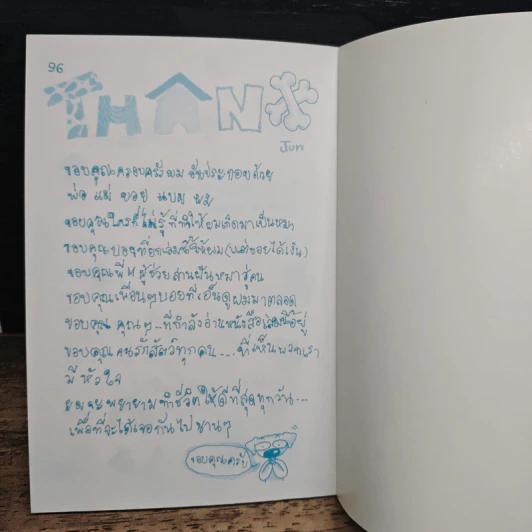 96
THANX
Jun
ขอบคุณครอบครัวผม อันประกอบด้วย
พ่อ แม่ บอย แบม ผม
ขอบคุณใครที่ไม่รู้ ที่ทำให้ผมเกิดมาเป็นหมา
ขอบคุณบอยที่ออกเล่มนี้ให้ผม (แต่บอยได้เงิน)
ขอบคุณพี่ ผู้ช่วยสานฝันหมาสู่คน
ขอบคุณเพื่อนๆบอยที่เอ็นดูผมมาตลอด
ขอบคุณ คุณๆ...ที่กำลังอ่านหนังสือเล่มนี้อยู่
ขอบคุณคนรักสัตว์ทุกคน....ที่เห็นพวกเรา
มีหัวใจ
ผมจะพยายามทำชีวิตให้ดีที่สุดทุกวัน...
เพื่อที่จะได้เจอกันไปนานๆ
ขอบคุณครับ